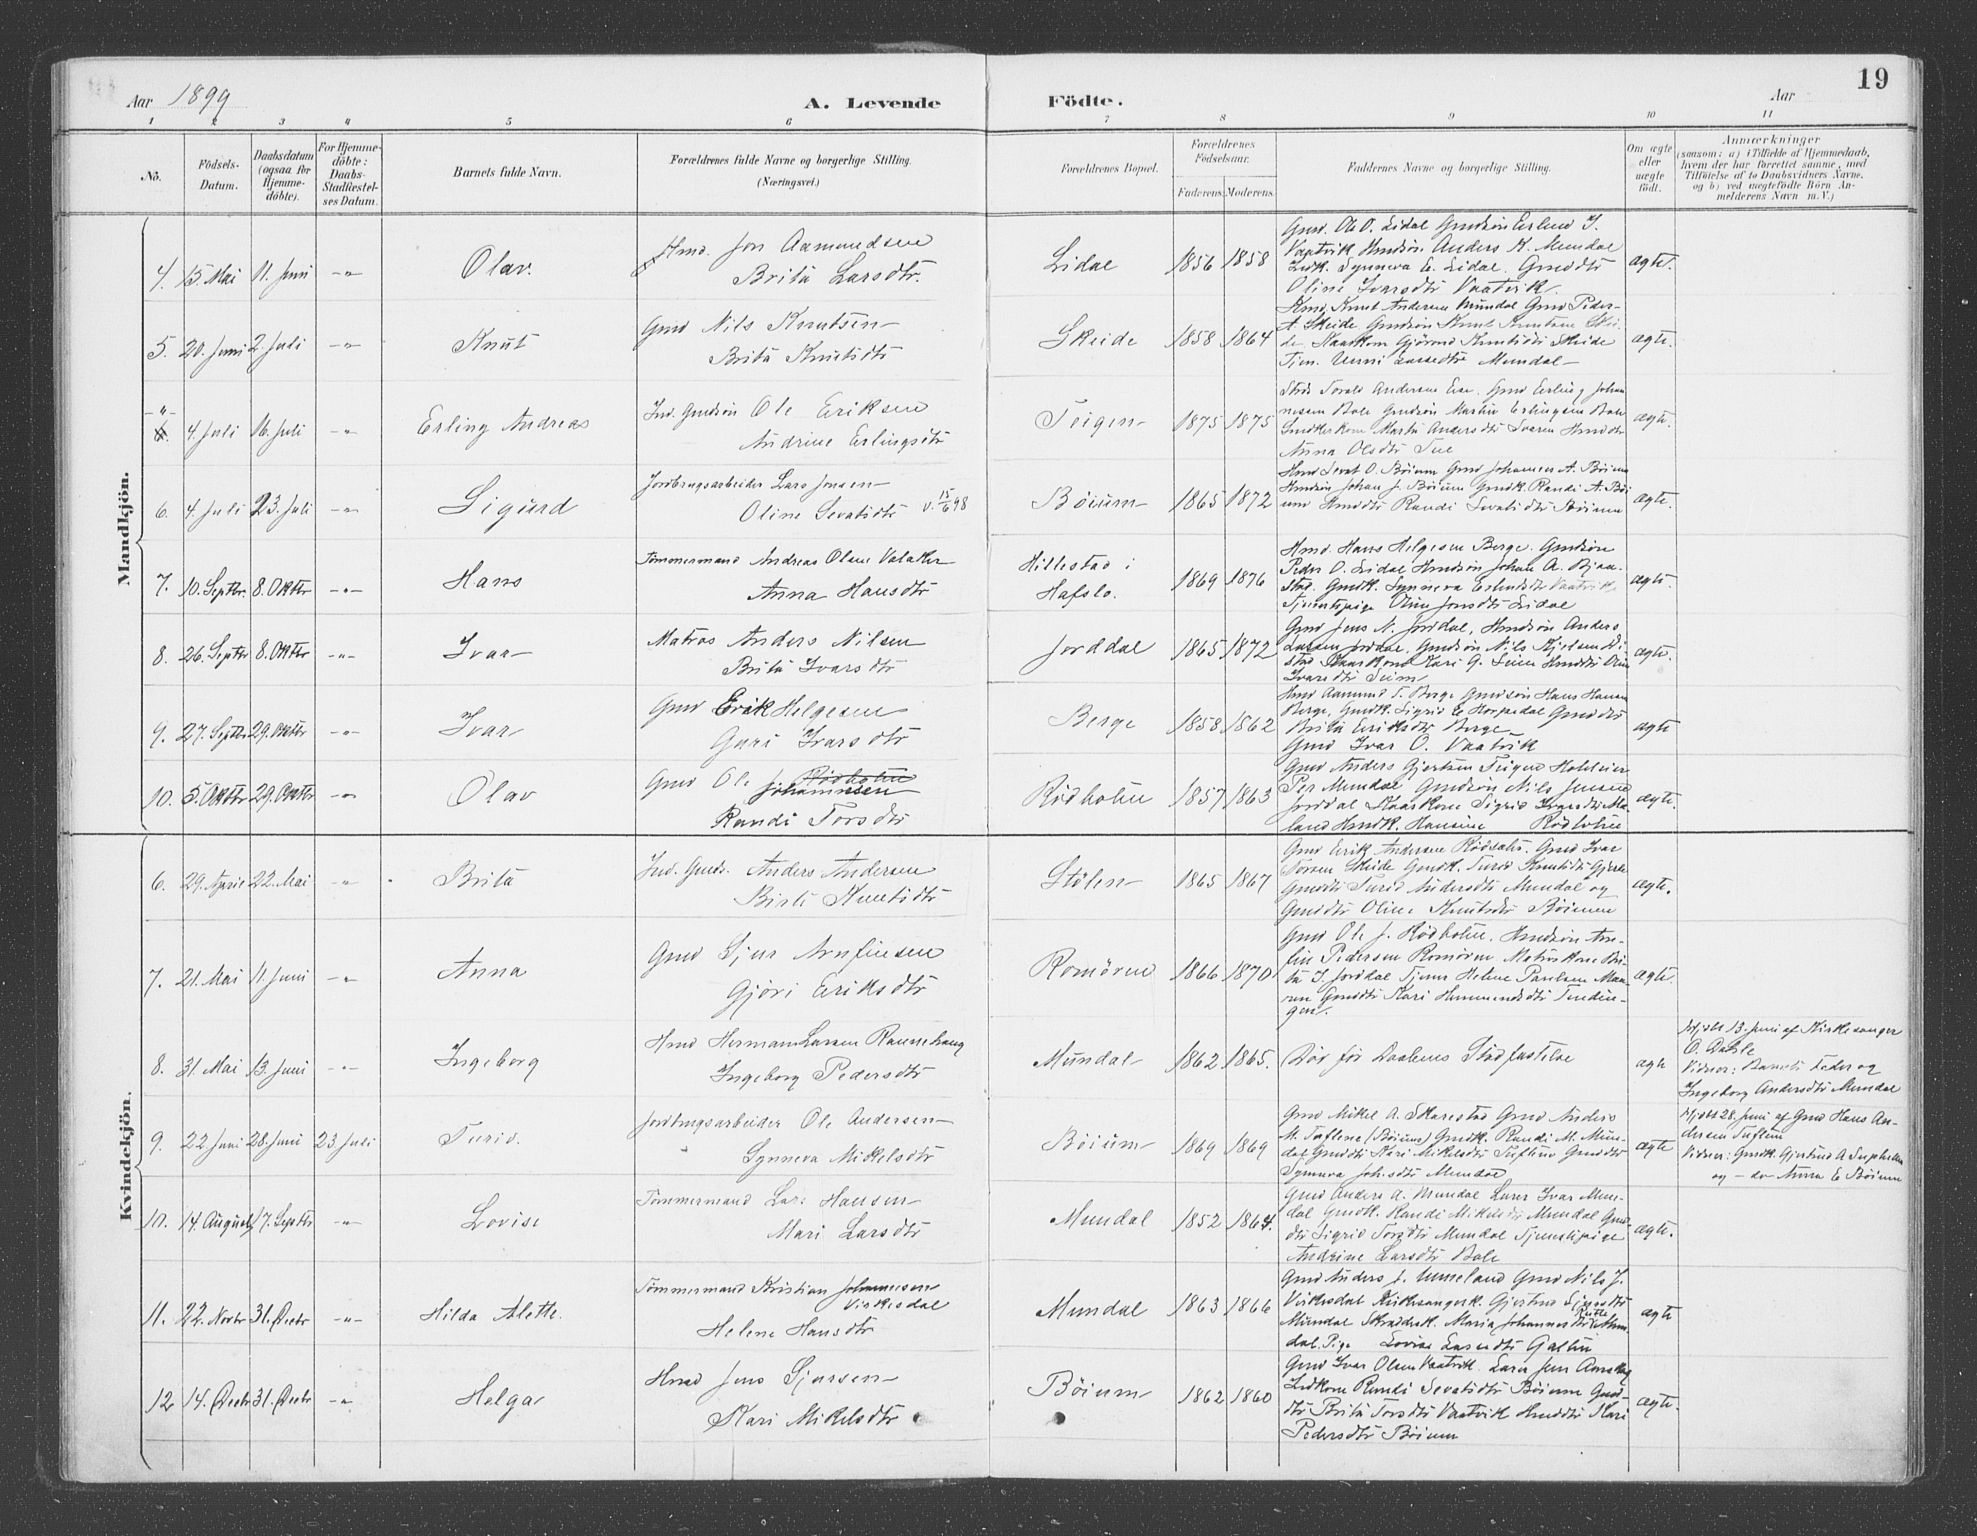 19
Aar 1899
A. Levende
Födte.
Aar
1 2 3 4 5 6 7 8 9 10 11
No.
Födsels-Datum.
Daabsdatum (ogsaa for Hjemme-döbte).
For Hjemme-döbte: Daabs-Stadfæstel-ses Datum.
Barnets fulde Navn.
Forældrenes fulde Navne og borgerlige Stilling.
(Næringsvei.)
Forældrenes Bopæl.
Forældrenes Födselsaar.
Faderens. Moderens.
Faddernes Navne og borgerlige Stilling.
Om ægte eller uægte födt.
Anmærkninger
(saasom: a) i Tilfælde af Hjemmedaab, hvem der har forrettet samme, med Tilföielse af to Daabsvidners Navne. og b) ved uægtefödte Börn An-melderens Navn m. V.)
Mandkjön.
4. 15 Mai 11. Juni -"- Olav. Hmd. Jon Aamundsen
Brita Larsdtr.
Lidal 1856 1858
Gmd. Ole O. Lidal Gmdsön Erlend I.
Vaatvik Hmdsön Anders K. Mundal
Ledk. Synneva E. Lidal. Gmddtr
Oline Ivarsdtr Vaatvik.
ægte.
5. 20. Juni 2. Juli -"- Knut Gmd Nils Knutsen
Brita Knutsdtr
Skeide 1858 1864
Hmd. Knut Andersen Mundal Gmd Peder
A. Skeide Gmdsön Knut Knutsen
Gjörond Knutsdtr Skeide
Mundal
ægte.
-"- 4. Juli 16. Juli -"- Erling Andreas Ind. Gmdsön Ole Eriksen
Andrine Erlingsdtr
Teigen 1875 1875
Andersen Gmd Erling Johan
nessen Bale Gmdsön Martin Erlingsen Bale
Snedkerkone Marta Andersdtr Hmddtr
Anna Olsdtr
ægte.
6. 4. Juli 23. Juli -"- Sigurd Jordbrugsarbeider Lars Jonsen
Oline Sevatsdtr v. 15/6 98
Böium 1865 1872
Hmd Sevat O. Böium Gmd Johannes A. Böium
Hmdsön Johan J. Böium Gmdk. Randi A. Böi
um Hmddtr Randi Sevatsdtr Böium
ægte.
7. 10. Septbr. 8. Oktbr -"- Hans Tömmermand Andreas Olsen Valaker
Anna Hansdtr
Hillestad i
Hafslo.
1869 1876
Hmd. Hans Helgesen Berge. Gmdsön
Peder O. Lidal Hmdsön Johan A. Bjaa-
stad. Gmdk. Synneva Erlendsdtr Vaatvik
Tjenestpige Oline Jonsdtr Lidal
ægte.
8. 26. Septbr 8. Oktbr -"- Ivar Matros Anders Nilsen
Brita Ivarsdtr
Jorddal 1865 1872
Gmd Jens N. Jordal, Hmdsön Anders
Larsen Jordal. Gmdsön Nils
Kari G. Seim Hmddtr Oline
Ivarsdtr Seim
ægte.
9. 27. Septbr 29. Oktbr -"- Ivar Gmd Erik Helgesen
Guri Ivarsdtr
Berge 1858 1862
Hmd Aamund T. Berge Gmdsön Hans Hansen
Berge, Gmdk. Sigrid E Horpedal Gmddtr
Brita Eriksdtr Berge
Gmd Ivar O. Vaatvik
ægte
10. 5. Oktbr 29. Oktbr -"- Olav Gmd Ole Rödholm
Johannessen
Randi Torsdtr
Rödholm 1857 1863
Gmd Anders Gjertsen Teigen
Per Mundal Gmdsön Nils Jensen
Jordal Sigrid Ivarsdtr
land Hmdk. Hansine Rödholm
ægte.
Kvindekjön.
6. 29. April 22. Mai -"- Brita Ind. Gmds. Anders Andersen
Birte Knutsdtr
Stölen 1865 1867
Gmd Erik Andersen Gmd Ivar
Torsen Skeide Gmdk. Turid Knutsdtr
Gmddtr Turid Andersdtr Mundal og
Gmddtr Oline Knutsdtr Böium
ægte.
7. 21. Mai 11. Juni -"- Anna Gmd Sjur Arnfinsen
Gjöri Eriksdtr
Romören 1866 1870
Gmd Ole J. Rödholm. Hmdsön Arn-
fin Pedersen Romören Matroskone Bri-
ta I. Jordal Helene Paulsen
Gmddtr Kari
gen.
ægte.
8. 31. Mai 13. Juni -"- Ingeborg Hmd Herman Larsen
Ingeborg Pedersdtr
Mundal 1862 1865. Död før Daabens Stadfæstelse ægte
Hjdöbt 13. Juni af Kirkesanger
O. Dahle
Vidner: Barnets Fader og
Ingeborg Andersdtr Mundal
9. 22 Juni 28. Juni 23. Juli Turid. Jordbrugsarbeider Ole Andersen
Synneva Mikelsdtr
Böium 1869 1869
Gmd Mikel A. Skarestad Gmd Anders
M. Tuftene (Böium) Gmdk. Randi M. Mun-
dal Gmddtr Kari Mikelsdtr Gmddtr
Synneva Johsdtr Mundal
ægte
Hjdöbt 28. Juni af Gmd Hans An-
dersen Tuftum
Vidner: Gmdk. Gjertrud A
og - do - Anna E Böium
10. 14. August 17. Septbr -"- Lovise Tömmermand Lars Hansen
Mari Larsdtr
Mundal 1852 1864.
Gmd Anders A. Mundal Lærer Ivar Mun-
dal Gmdk. Randi Mikelsdtr Mundal Gmd-
dtr Sigrid Torsdtr Mundal Tjenestpige
Andrine Larsdtr Bale
ægte.
11. 22. Novbr 31. Decbr -"- Hilda Alette. Tömmermand Kristian Johannesen
Virkesdal
Helene Hansdtr
Mundal 1863 1866
Gmd Anders J. Ummeland Gmd Nils J.
Virkesdal Kirkesangerk. Gjertrud Sjursdtr
Mundal Skrædderk. Maria Johannesdtr Mun-
dal. Pige Lovise Larsdtr
ægte
12 14. Decbr 31. Decbr -"- Helga Hmd Jens Sjursen
Kari Mikelsdtr
Böium 1862 1860
Gmd Ivar Olsen Vaatvik. Lærer Jens
Ledkone Randi Sevatsdtr Böium Gmd-
dtr Brita Torsdtr Vaatvik Hmddtr Kari
Pedersdtr Böium
ægte.